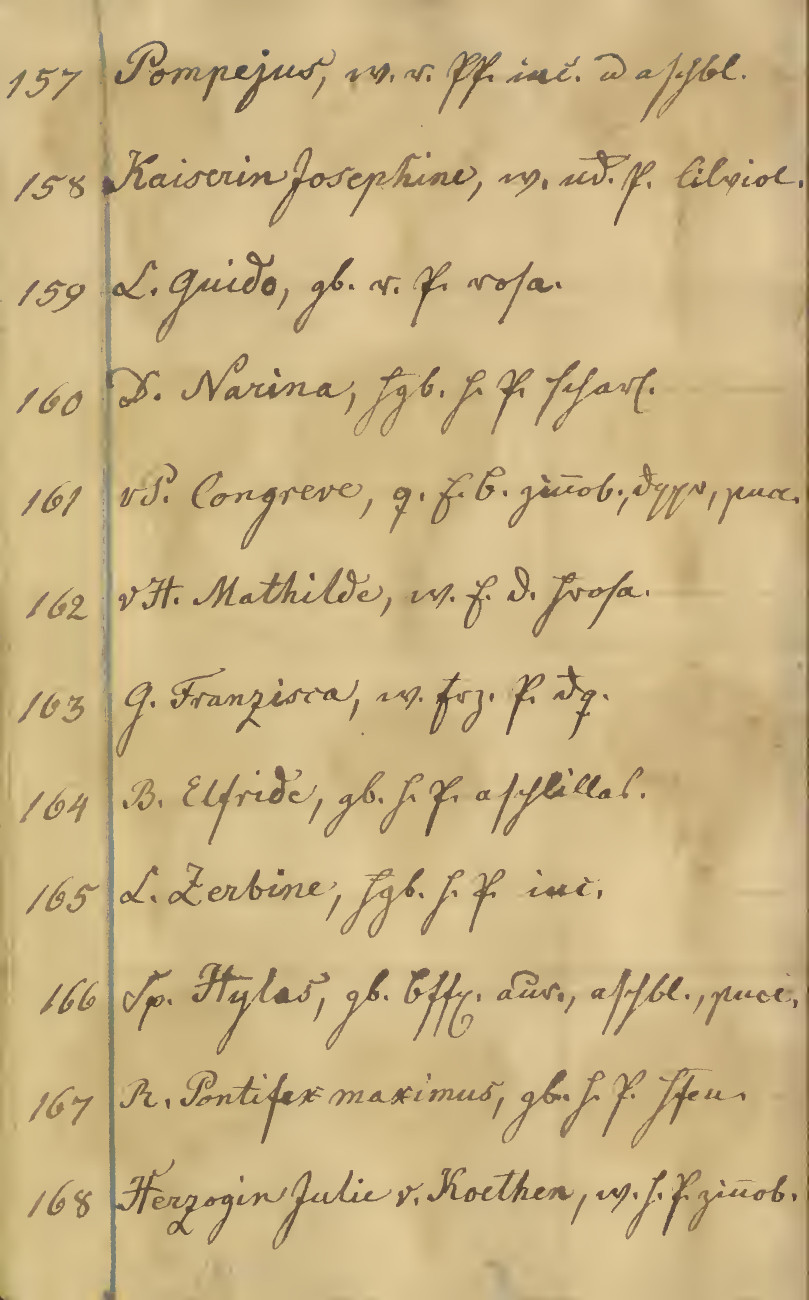 157 Pompejus, w. r. Pf. inc. u aschbl.
158 Kaiserin Josephine, w. ud. P. lilviol.
159 L. Guido, gb. r. P. rosa.
160 D. Narina, hgb. h. P. scharl.
161 vP. Congreve, g. f. b. zinnob.,
162 vH. Mathilde, w. f. d. hrosa.
163 G. Franzisca, w. frz. P. dg.
164 B. Elfride, gb. h. P. aschlillas.
165 L. Zerbine, hgb. h. P. inc.
166 Sp. Hylas, gb. aur., aschbl., puce.
167 R. Pontifex maximus, gb. h. P. hfeu.
168 Herzogin Julie v. Koethen, w. h. P. zinnob.